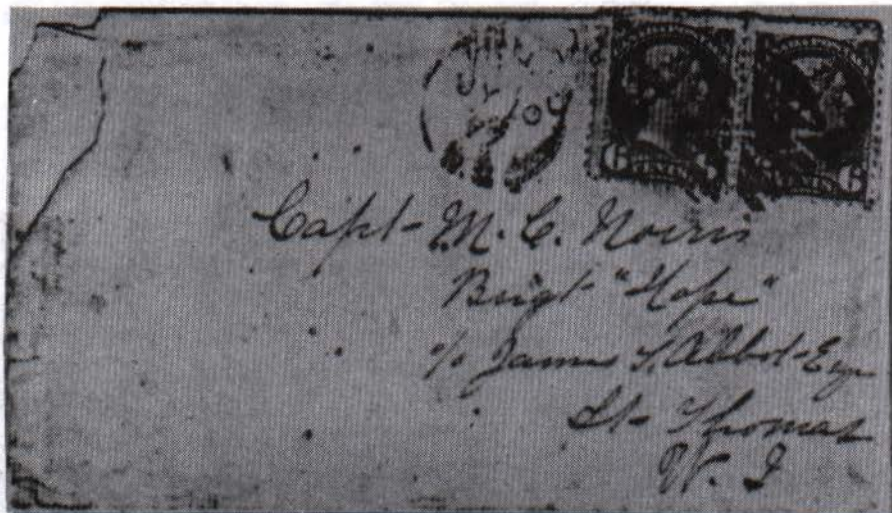 6 CENTS 6 CENTS 6
Capt- M. C. Norris
Brigt "Hope"
c/o James S. Abbot Esq
St- Thomas
W. I